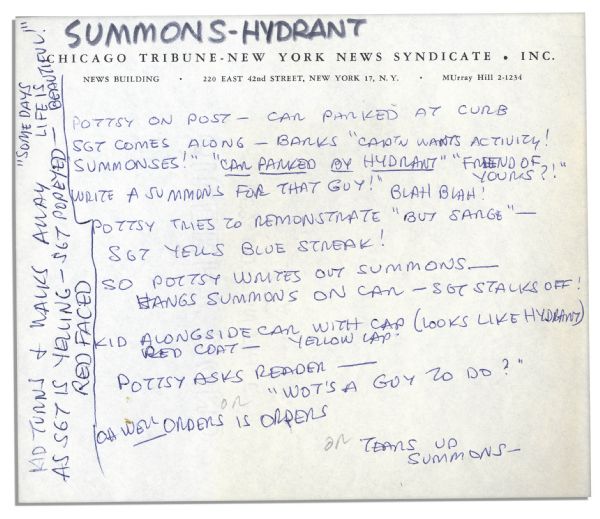 SUMMONS-HYDRANT
CHICAGO TRIBUNE-NEW YORK NEWS SYNDICATE • INC.
NEWS BUILDING • 220 EAST 42nd STREET, NEW YORK 17, N. Y. • MUrray Hill 2-1234
POTTSY ON POST - CAR PARKED AT CURB
SGT COMES ALONG - BARKS "CAP'N WANTS ACTIVITY!
SUMMONSES!" "CAR PARKED BY HYDRANT" "FRIEND OF
YOURS?!"
WRITE A SUMMONS FOR THAT GUY!" BLAH BLAH!
POTTSY TRIES TO REMONSTRATE "BUT SARGE"—
SGT YELLS BLUE STREAK!
SO POTTSY WRITES OUT SUMMONS—
HANGS SUMMONS ON CAR - SGT STALKS OFF!
KID ALONGSIDE CAR WITH CAP (LOOKS LIKE HYDRANT)
RED COAT - YELLOW CAP.
POTTSY ASKS READER —
"WOT'S A GUY TO DO?"
OR
OH WELL ORDERS IS ORDERS
OR TEARS UP
SUMMONS-
"SOME DAYS
LIFE IS
BEAUTIFUL!"
KID TURNS + WALKS AWAY
AS SGT IS YELLING - SGT POPEYED -
RED FACED